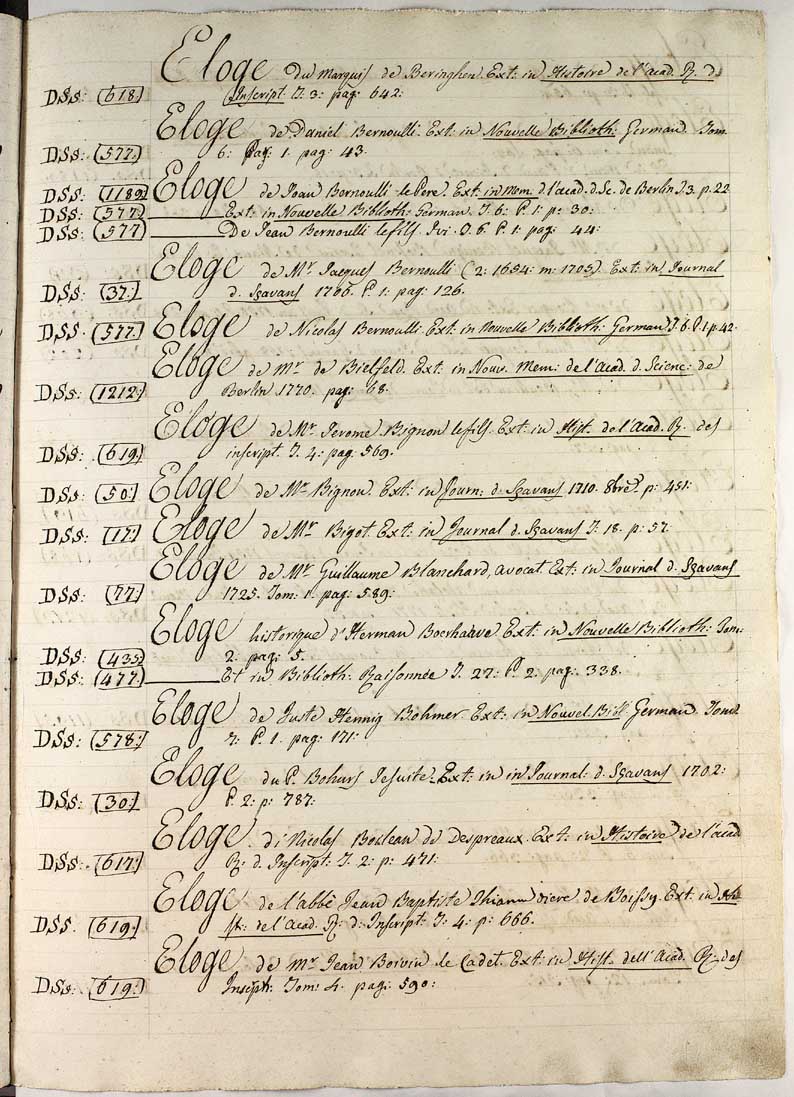 Eloge du Marquis de Beringhen. Ext: in Histoire de l'acad. R. d.
DSs: (618.) Inscript. T. 3: pag: 642:
Eloge de Daniel Bernoulli. Ext: in Nouvelle Biblioth: German. Tom.
DSs: (577.) 6: Par. 1. pag: 43.
DSs: (1189) Eloge de Joan Bernoulli le Pere. Ext: in Mem. d. l'acad. d. Sc. de Berlin T. 3. p. 22
DSs: (577.) Ext: in Nouvelle Biblioth: German. T. 6: P. 1: p: 30:
DSs: (577) De Jean Bernoulli le fils. Ivi. T. 6. P. 1: pag: 44:
Eloge de Mr. Jacques Bernoulli (2: 1654: m: 1705). Ext: in Journal
DSs: (37.) d. Sçavans 1706. P. 1: pag: 126.
DSs: (577.) Eloge de Nicolas Bernoulli. Ext: in Nouvelle Biblioth: German T. 6. P. 1. p. 42.
Eloge de mr. de Bielfeld. Ext: in Nouv. Mem: de l'Acad. d. Scienc: de
DSs: (1212:) Berlin 1770. pag: 68.
Eloge de Mr. Jerome Bignon le fils. Ext: in Hist. de l'Acad. R. des
DSs: (619.) inscript. T. 4: pag. 569.
DSs: (50:) Eloge de Mr. Bignon. Ext: in Journ: d. Sçavans 1710. 8bre. p: 451:
DSs: (17:) Eloge de Mr. Bigot. Ext: in Journal d. Sçavans T: 18. p: 57:
Eloge de Mr. Guillaume Blanchard, avocat. Ext: in Journal d. Sçavans
DSs: (77:) 1725. Tom: 1. pag: 589:
Eloge historique d'Herman Boerhaave Ext: in Nouvelle Biblioth: Tom:
DSs: (435) 2: pag: 5.
DSs: (477.) Et in Biblioth: Raisonnée T. 27: P. 2. pag: 338.
Eloge de Juste Hennig Bohmer. Ext: in Nouvel. Bibl. German. Tom:
DSs: (578:) P. 1. pag: 171:
Eloge du P. Bohurs Jesuite. Ext: in in Journal: d. Sçavans 1702:
DSs: (30:) P. 2: p: 787:
Eloge di Nicolas Boileau de Despreaux. Ext: in Histoire de l'acad
DSs: (617:) R: d. Inscript. T: 2: p: 471:
Eloge de l'abbé Jean Baptiste de Boissy. Ext: in Hi
DSs. (619:) st: de l'Acad. R: d: Inscript: T: 4: p: 666.
Eloge de mr. Jean Boivin le Cadet. Ext: in Hist. dell'Acad. R. des
DSs: (619:) Inscript: Tom: 4. pag: 590: